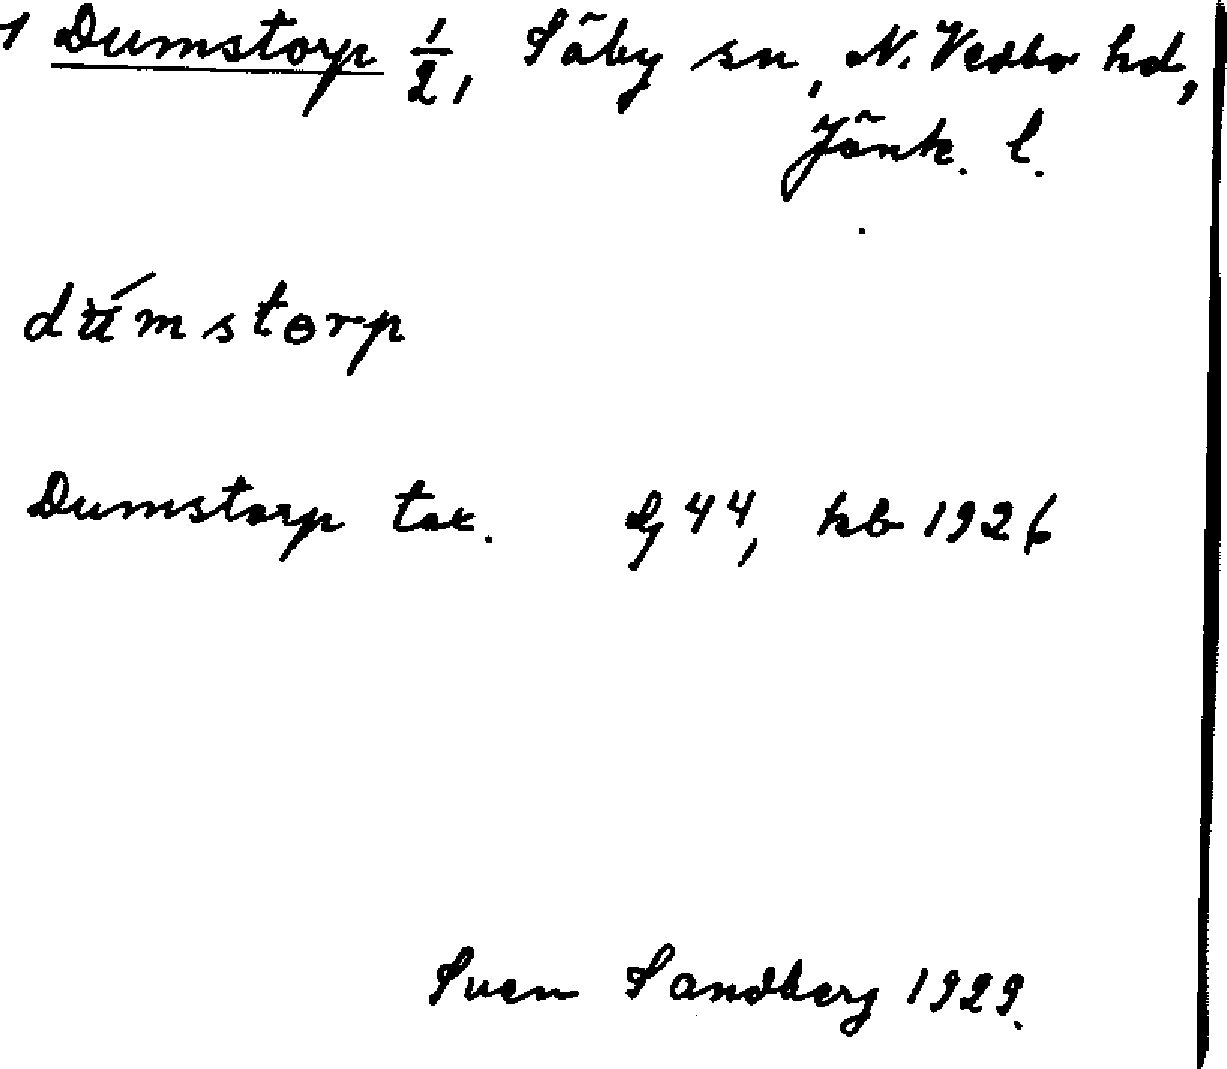 1 Dumstorp 1/2, Säby sn, N. Vedbo hd,
Jönk. l.
dúmstɵrp
Dumstorp tax. Lj 44, kb 1926
Sven Sandberg 1929.